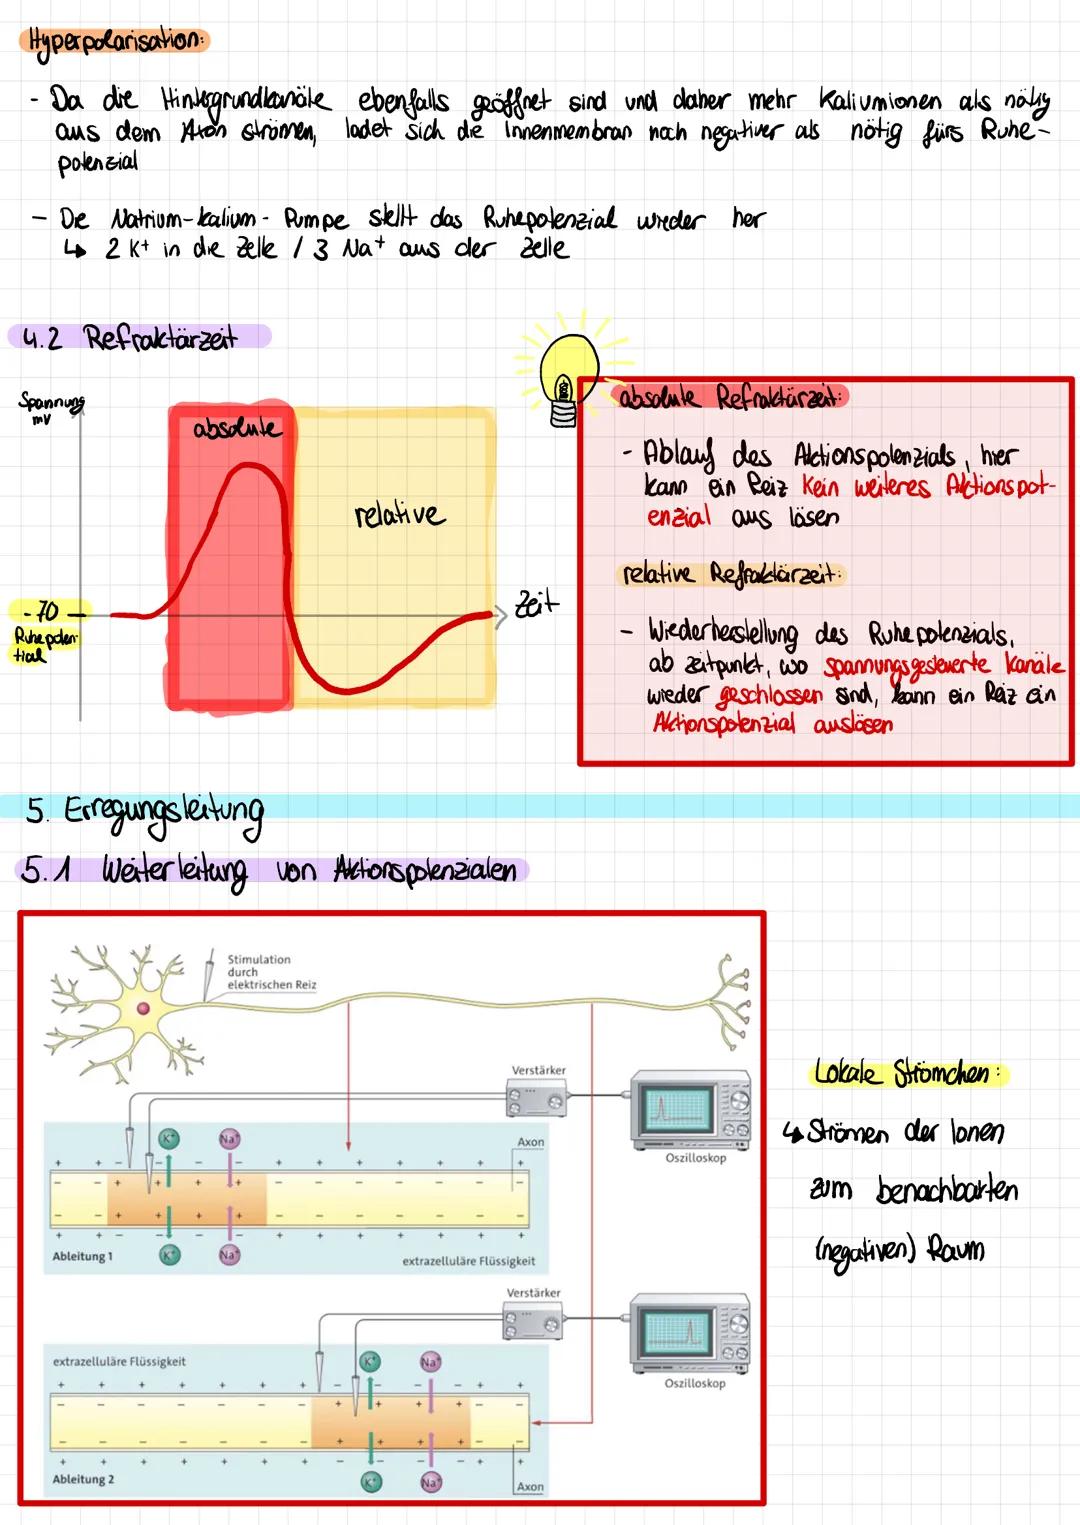 Hyperpolarisation:
- Da die Hintergrundkanäle ebenfalls geöffnet sind und daher mehr Kaliumionen als nötig
aus dem Axon strömen, ladet sich die Innenmembran noch negativer als nötig fürs Ruhe-
potenzial
- Die Natrium-kalium-Pumpe stellt das Ruhepotenzial wieder her
↳ 2 K+ in die Zelle / 3 Na+ aus der Zelle
4.2 Refraktärzeit
Spannung
mV
absolute
relative
-70
Ruhepoten-
tial
Zeit
absolute Refraktärzeit:
- Ablauf des Aktionspotenzials, hier
kann ein Reiz kein weiteres Aktionspot-
enzial aus lösen
relative Refraktärzeit:
- Wiederherstellung des Ruhepotenzials,
ab zeitpunkt, wo spannungsgesteuerte Kanäle
wieder geschlossen sind, kann ein Reiz ein
Aktionspotenzial auslösen
5. Erregungsleitung
5.1 Weiterleitung von Aktionspotenzialen
Stimulation
durch
elektrischen Reiz
Verstärker
Oszilloskop
K+ Na+
Axon
K+ Na+
Ableitung 1
extrazelluläre Flüssigkeit
Verstärker
Oszilloskop
extrazelluläre Flüssigkeit
K+ Na+
K+ Na+
Ableitung 2
Axon
Lokale Strömchen:
↳ Strömen der Ionen
zum benachbarten
(negativen) Raum